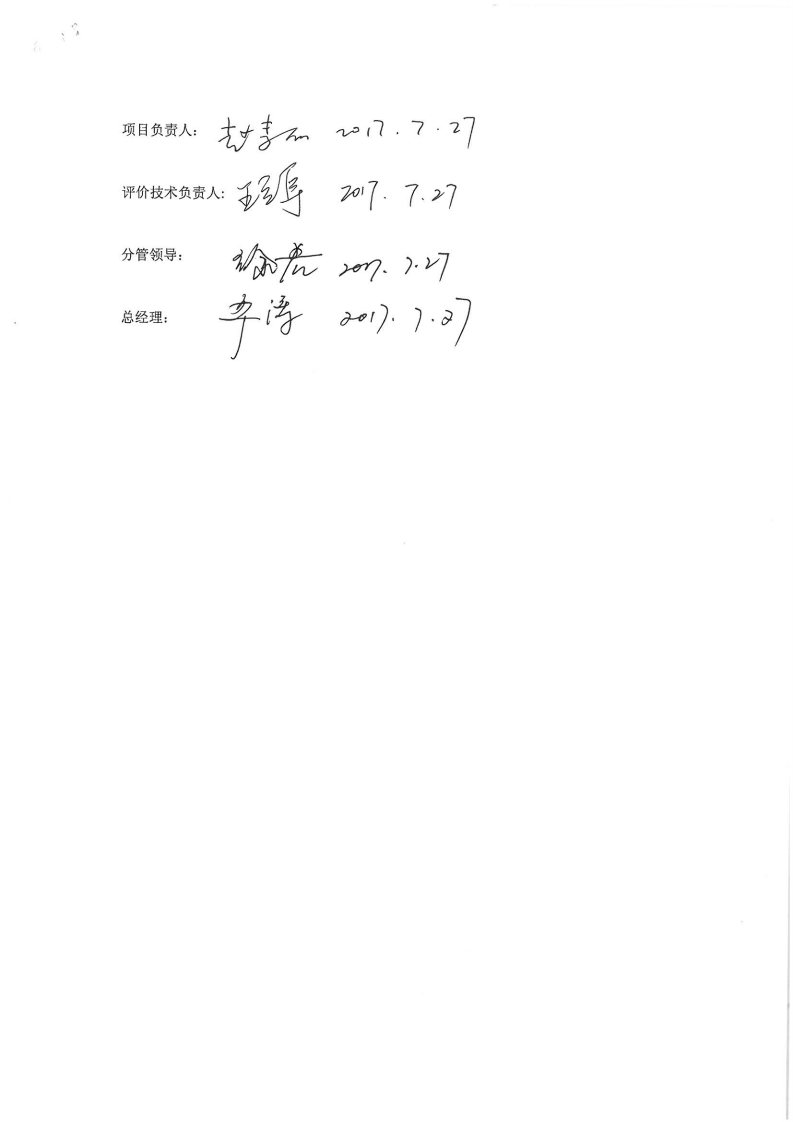 项目负责人: 赵 2017.7.27
评价技术负责人: 王 2017.7.27
分管领导: 徐 2017.7.27
总经理: 李涛 2017.7.27